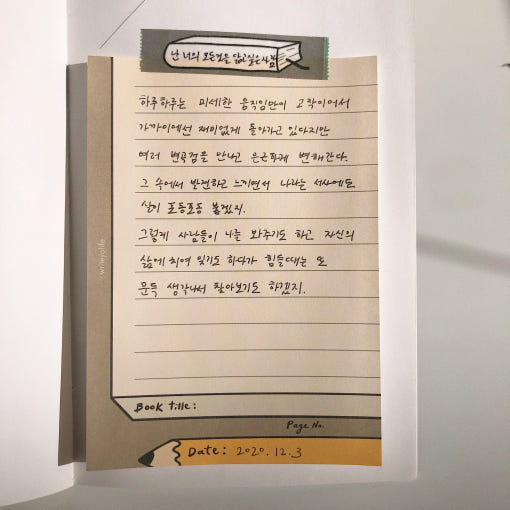 난 너의 모든것을 닮고싶은 사람
하루하루는 미세한 움직임만이 고작이어서
가까이에선 재미없게 돌아가고 있다지만
여러 변곡점을 만나고 은근하게 변해간다.
그 속에서 발견하고 느끼면서 나라는 서사에도
살이 포동포동 붙겠지.
그렇게 사람들이 나를 봐주기도 하고 자신의
삶에 치여 잊기도 하다가 힘들때는 또
문득 생각나서 찾아보기도 하겠지.
Book title:
Page No.
Date: 2020.12.3